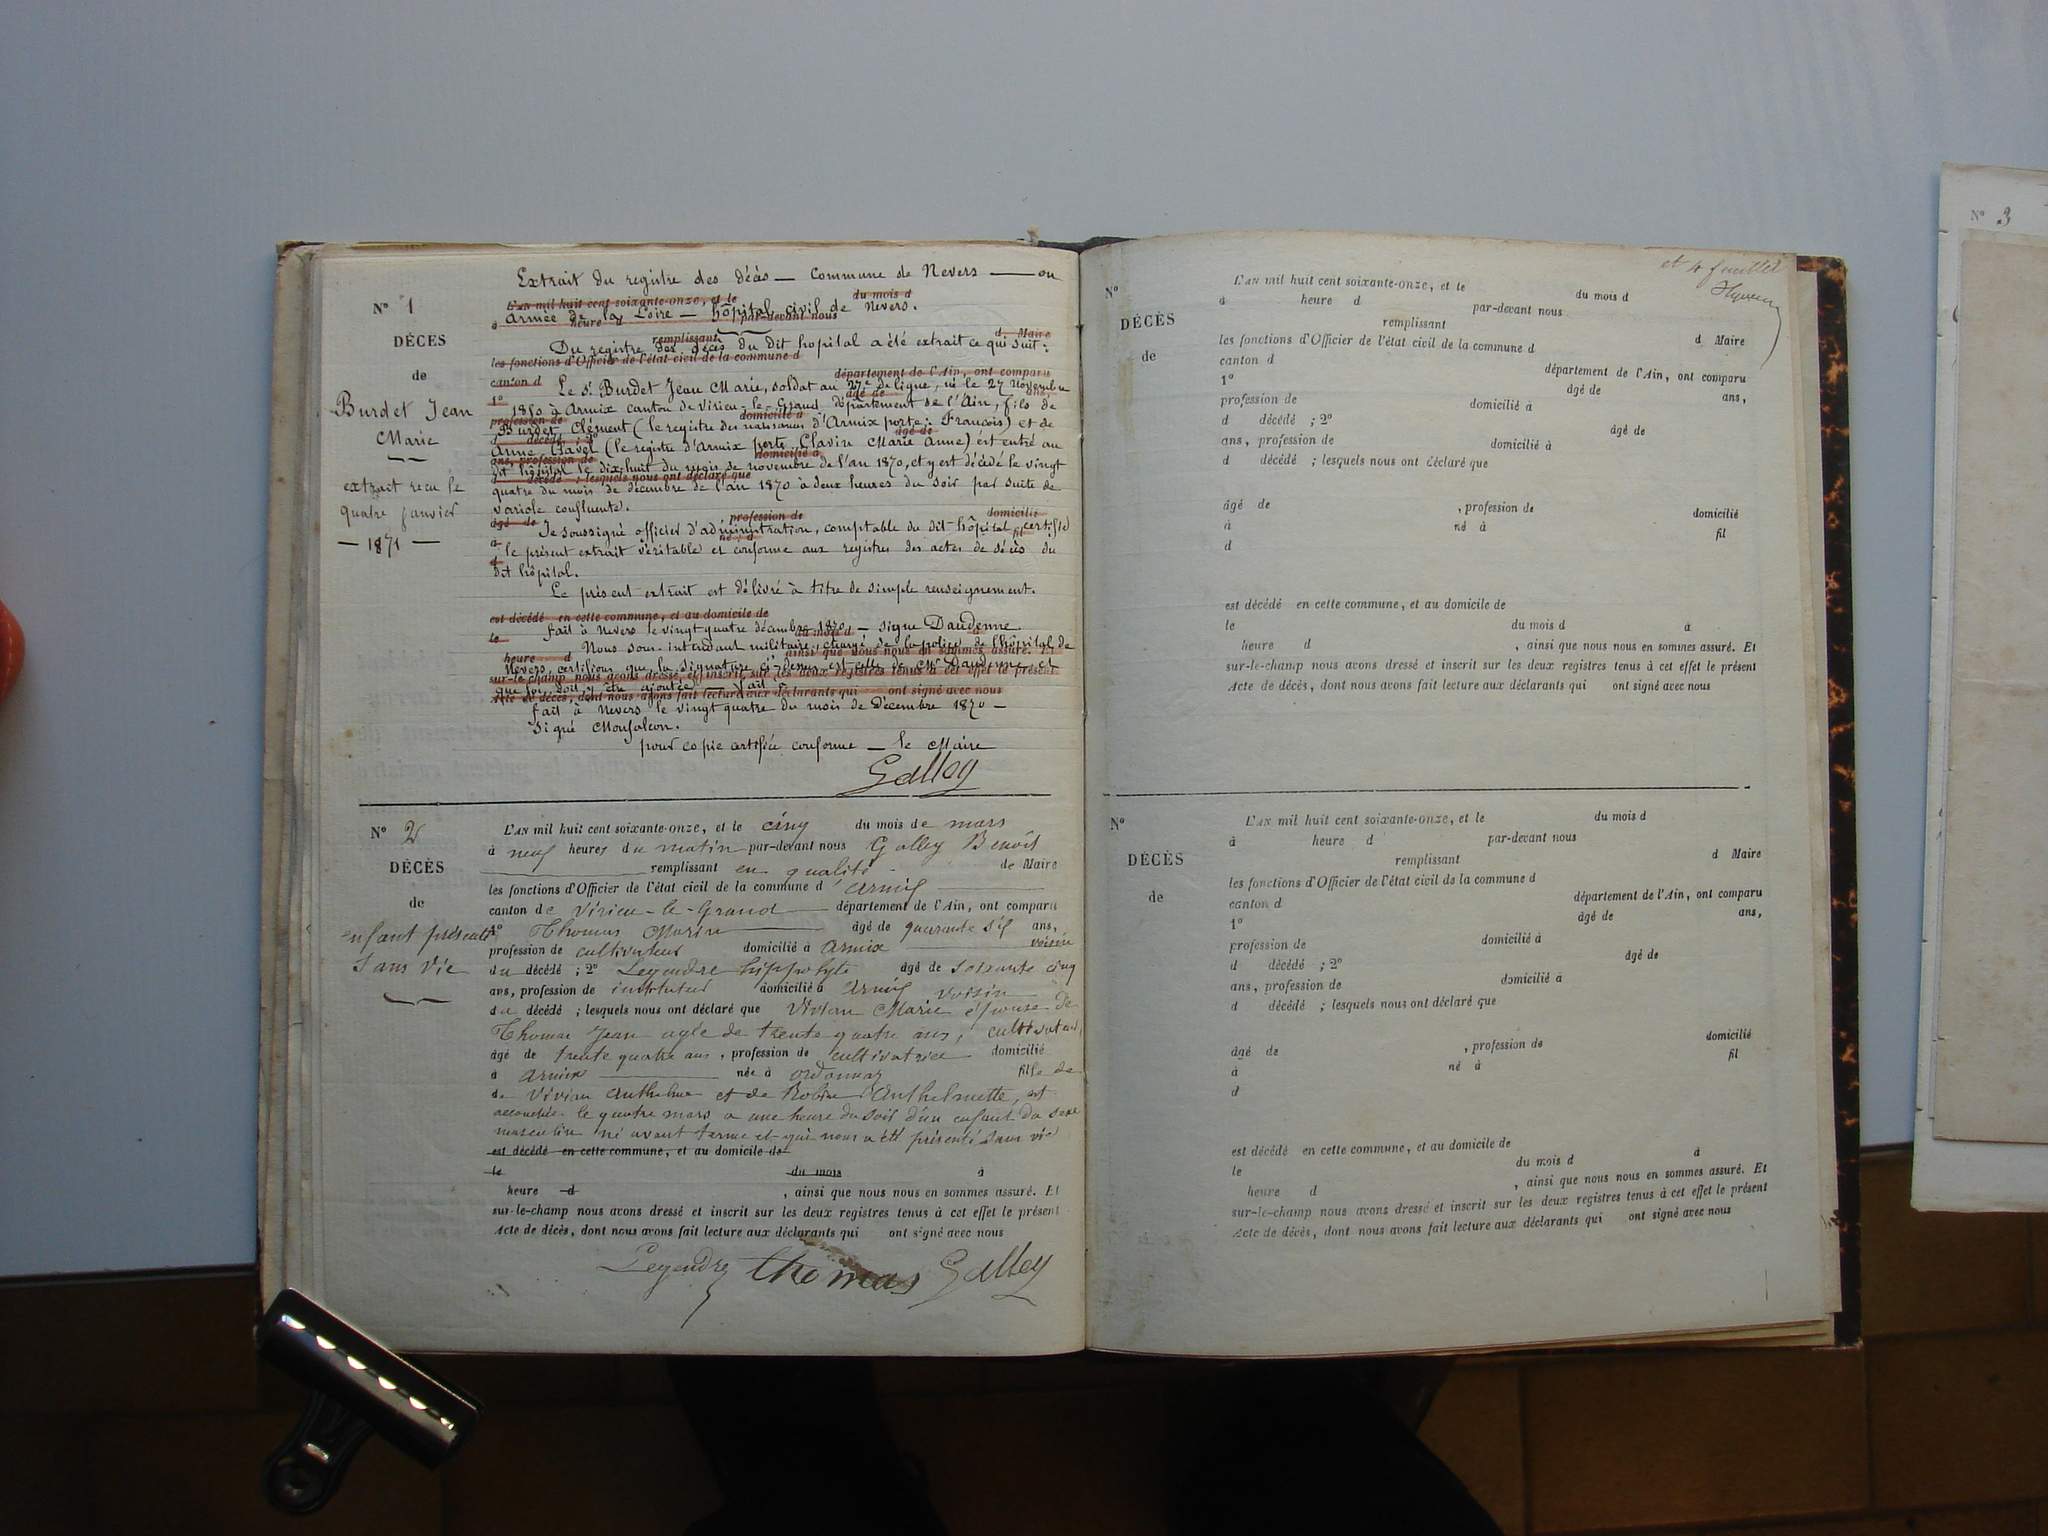 Extrait du registre des décès — Commune de Nevers — ou
N° 1
L'AN mil huit cent soixante-onze, et le du mois d
Armée de la Loire — hôpital civil de Nevers.
à heure d par-devant nous
DÉCÈS
remplissant d Maire
Du registre des décès du dit hopital a été extrait ce qui suit :
les fonctions d'Officier de l'état civil de la commune d
de
canton d département de l'Ain, ont comparu
Le Sr Burdet Jean Marie, soldat au 27e de ligne, né le 27 novembre
1° âgé de ans,
Burdet Jean
1850 à Armix canton de Virieu-le-Grand département de l'Ain, fils de
profession de domicilié à
Burdet Clément (le registre des naissances d'Armix porte : François) et de
Marie
d décédé ; 2° âgé de
Anne Gavet (le registre d'Armix porte Clavin Marie Anne) est entré au
ans, profession de domicilié à
dit hôpital le dix huit du mois de novembre de l'an 1870, et y est décédé le vingt
d décédé ; lesquels nous ont déclaré que
extrait reçu le
quatre du mois de décembre de l'an 1870 à deux heures du soir par suite de
quatre janvier
variole confluente.
âgé de profession de domicilié
Je soussigné officier d'administration, comptable du dit hôpital certifie
à né à fil
— 1871 —
le présent extrait véritable et conforme aux registres des actes de décès du
d
dit hôpital.
Le présent extrait est délivré à titre de simple renseignement.
est décédé en cette commune, et au domicile de
fait à Nevers le vingt quatre décembre 1870 — signé Daudenne
le du mois d à
Nous sous-intendant militaire, chargé de la police de l'hôpital de
heure d ainsi que nous nous en sommes assuré. Et
Nevers, certifions que la signature ci-dessus est celle de Mr Daudenne et
sur-le-champ nous avons dressé et inscrit sur les deux registres tenus à cet effet le présent
que foi doit y être ajoutée fait
Acte de décès, dont nous avons fait lecture aux déclarants qui ont signé avec nous
fait à Nevers le vingt quatre du mois de Décembre 1870 —
Signé Monfalcon.
pour copie certifiée conforme — le Maire
Galley
N° 2
L'AN mil huit cent soixante-onze, et le cinq du mois de mars
à neuf heures du matin par-devant nous Galley Benoît
DÉCÈS
remplissant en qualité de Maire
les fonctions d'Officier de l'état civil de la commune d'Armix
de
canton de Virieu-le-Grand département de l'Ain, ont comparu
enfant présenté
1° Thomas Marin âgé de quarante six ans,
profession de cultivateur domicilié à Armix voisin
Sans Vie
du décédé ; 2° Legendre hippolyte âgé de soixante cinq
ans, profession de instituteur domicilié à Armix voisin
du décédé ; lesquels nous ont déclaré que Vivian Marie épouse de
Thomas Jean agée de trente quatre ans, cultivateur,
âgé de trente quatre ans, profession de cultivatrice domicilié
à Armix née à ordonnaz fille de
de Vivian Anthelme et de Robin Anthelmette, est
accouchée le quatre mars a une heure du soir d'un enfant du sexe
masculin né avant terme et qui nous a été présenté sans vie
est décédé en cette commune, et au domicile de
le du mois à
heure d , ainsi que nous nous en sommes assuré. Et
sur-le-champ nous avons dressé et inscrit sur les deux registres tenus à cet effet le présent
Acte de décès, dont nous avons fait lecture aux déclarants qui ont signé avec nous
Legendre thomas Galley
et 4 feuillet
N°
L'AN mil huit cent soixante-onze, et le du mois d
à heure d par-devant nous
DÉCÈS
remplissant d Maire
les fonctions d'Officier de l'état civil de la commune d
de
canton d département de l'Ain, ont comparu
1° âgé de ans,
profession de domicilié à
d décédé ; 2° âgé de
ans, profession de domicilié à
d décédé ; lesquels nous ont déclaré que
âgé de , profession de domicilié
à né à fil
d
est décédé en cette commune, et au domicile de
le du mois d à
heure d , ainsi que nous nous en sommes assuré. Et
sur-le-champ nous avons dressé et inscrit sur les deux registres tenus à cet effet le présent
Acte de décès, dont nous avons fait lecture aux déclarants qui ont signé avec nous
N°
L'AN mil huit cent soixante-onze, et le du mois d
à heure d par-devant nous
DÉCÈS
remplissant d Maire
les fonctions d'Officier de l'état civil de la commune d
de
canton d département de l'Ain, ont comparu
1° âgé de ans,
profession de domicilié à
d décédé ; 2° âgé de
ans, profession de domicilié à
d décédé ; lesquels nous ont déclaré que
âgé de , profession de domicilié
à né à fil
d
est décédé en cette commune, et au domicile de
le du mois d à
heure d , ainsi que nous nous en sommes assuré. Et
sur-le-champ nous avons dressé et inscrit sur les deux registres tenus à cet effet le présent
Acte de décès, dont nous avons fait lecture aux déclarants qui ont signé avec nous
N° 3